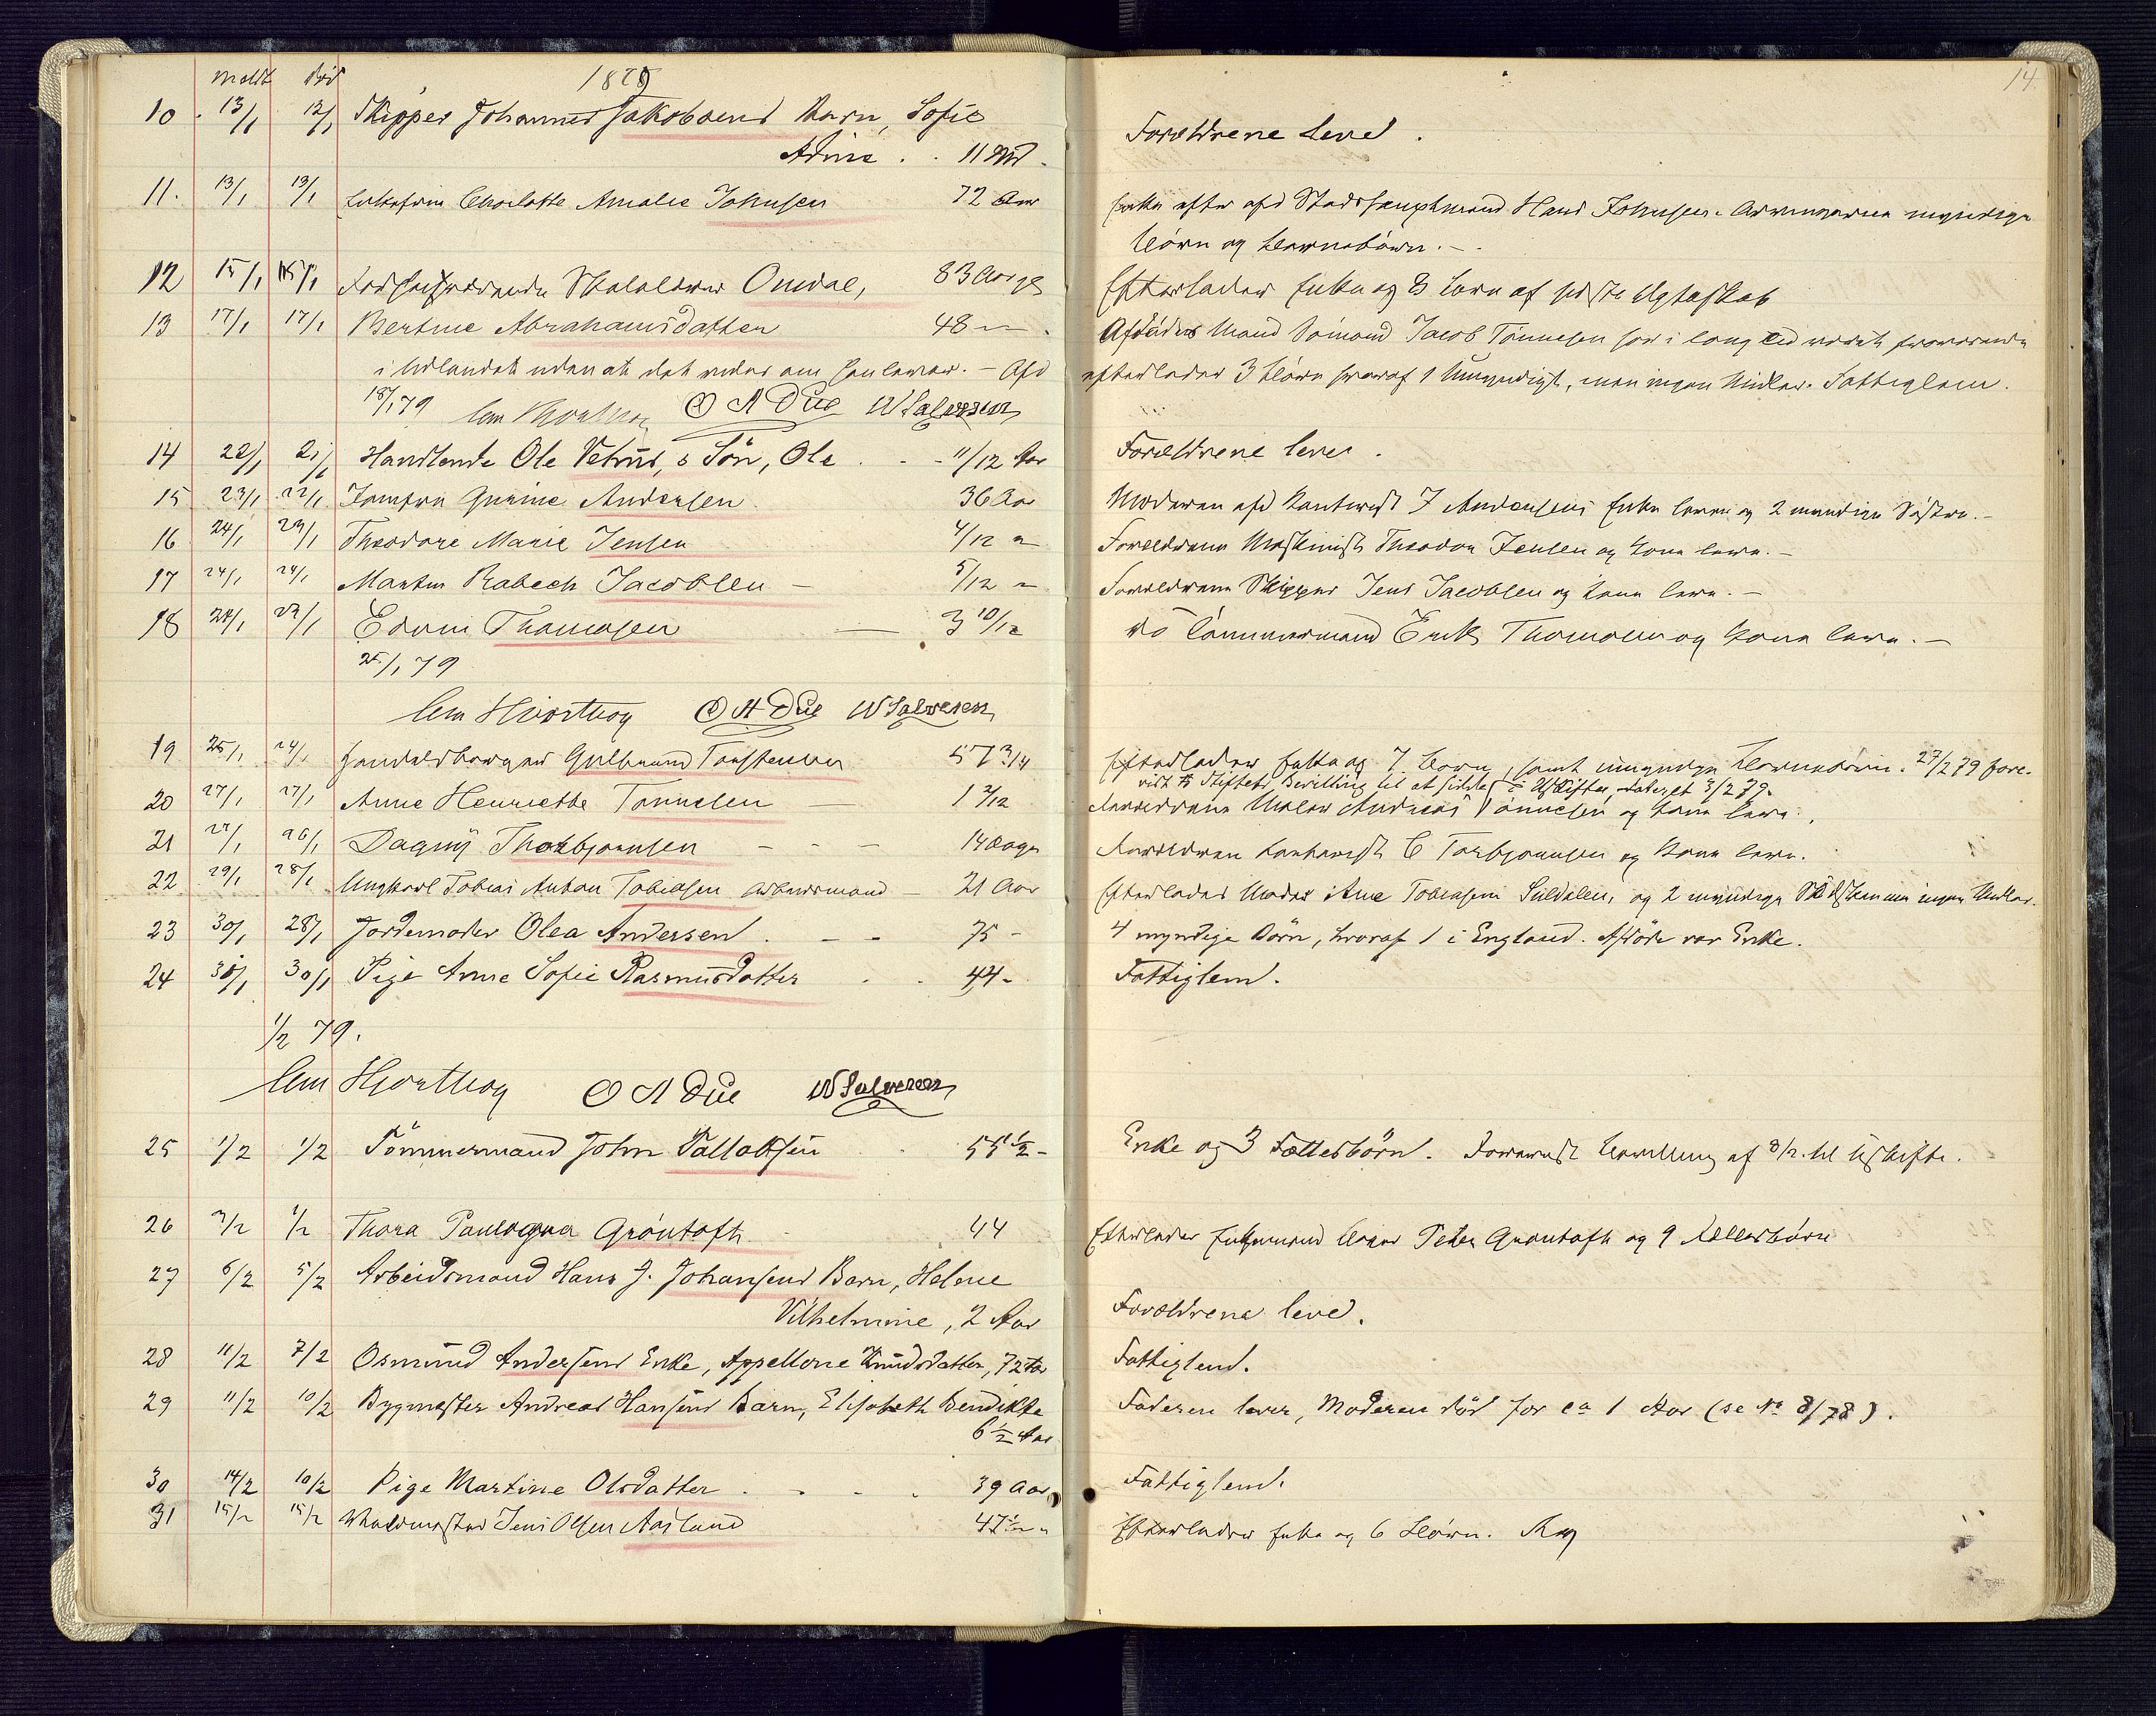 Meldt Död 1879
14
10 13/1 12/1 Skipper Johannes Jakobsens Barn, Sofie
Forældrene leve.
Adine . . 11 Md.
11. 13/1 13/1 Enkefru Charlotte Amalie Johnsen 72 Aar
Enke efter afd Stadshauptmand Hans Johnsen. Arvingerne myndige
Börn og Barnebörn. -
12 15/1 15/1 Omdal, 83 Aar
Efterlader Enke og 3 Börn af sidste Ægteskab
13 17/1 17/1 Bertine Abrahamsdatter 48 — .
Afdödes Mand Sömand Jacob Tönnesen har i lang Tid været fraværende
i Udlandet uden at det vides om han lever. - Afd
efterlader 3 Börn hvoraf 1 Umyndigt, men ingen Midler. Fattiglem.
18/1 79 O A Due W Salvesen
14 22/1 21/1 Handlende Ole Vetrus, s Sön, Ole . . - 11/12 Aar
Forældrene lever.
15 23/1 22/1 Jomfru Gurine Andersen 36 Aar
Moderen afd J Andersens Enke lever og 2 myndige Söstre. -
16 24/1 23/1 Theodore Marie Jensen 4/12 "
Forældrene Maskinist Theodor Jensen og Kone leve. -
17 24/1 24/1 Martin Rabech Jacobsen - 5/12 "
Forældrene Skipper Jens Jacobsen og Kone leve. -
18 24/1 23/1 Edvin Thomasen — 3 10/12
do Tömmermand Erik Thomasen og Kone leve. -
25/1 79
Chr Hjorthoy O A Due W Salvesen
19 25/1 24/1 Handelsborger Gulbrand Torstensen 57 3/4
Efterlader Enke og 7 Börn, samt umyndige Barnebörn. 27/2 79 fore-
vist Stiftets Bevilling til at sidde i Uskiftet, dateret 3/2 79.
20 27/1 27/1 Anne Henriette Tönnesen 1 2/12
Forældrene Maler Andreas Tönnesen og Kone leve.
21 27/1 26/1 Dagny Thorbjornsen - - - 14 Dage
Forældrene C Torbjornsen og Kone leve.
22 29/1 28/1 Ungkarl Tobias Anton Tobiasen Arbeidsmand - 21 Aar
Efterlader Moder Ane Tobiasen Suldalen, og 2 myndige Södskende men ingen Midler.
23 30/1 28/1 Jordemoder Olea Andersen . - - 75 -
4 myndige Börn, hvoraf 1 i England. Afdöde var Enke.
24 30/1 30/1 Pige Anne Sofie Rasmusdatter . . 44 -
Fattiglem.
1/2 79.
Chr Hjorthoy O A Due W Salvesen
25 1/2 1/2 Tömmermand John Tallaksen . . 55 1/2 -
Enke og 3 Fællesbörn. Forevist Bevilling af 8/2 til Uskifte.
26 3/2 1/2 Thora Gröntoft 44
Efterlader Enkemand Peter Gröntoft og 9 Fællesbörn
27 6/2 5/2 Arbeidsmand Hans J. Johansens Barn, Helene
Vilhelmine, 2 Aar
Forældrene leve.
28 11/2 7/2 Osmund Andersens Enke, Appellone Knudsdatter, 72 Aar
Fattiglem.
29 11/2 10/2 Bygmester Andreas Hansens Barn, Elisabeth Bendikte
6 1/2 Aar
Faderen lever, Moderen död for ca 1 Aar (se No 8/78).
30 14/2 10/2 Pige Martine Olsdatter . . . . 39 Aar
Fattiglem.
31 15/2 15/2 Jens Olsen Aasland 47 1/2 "
Efterlader Enke og 6 Börn.